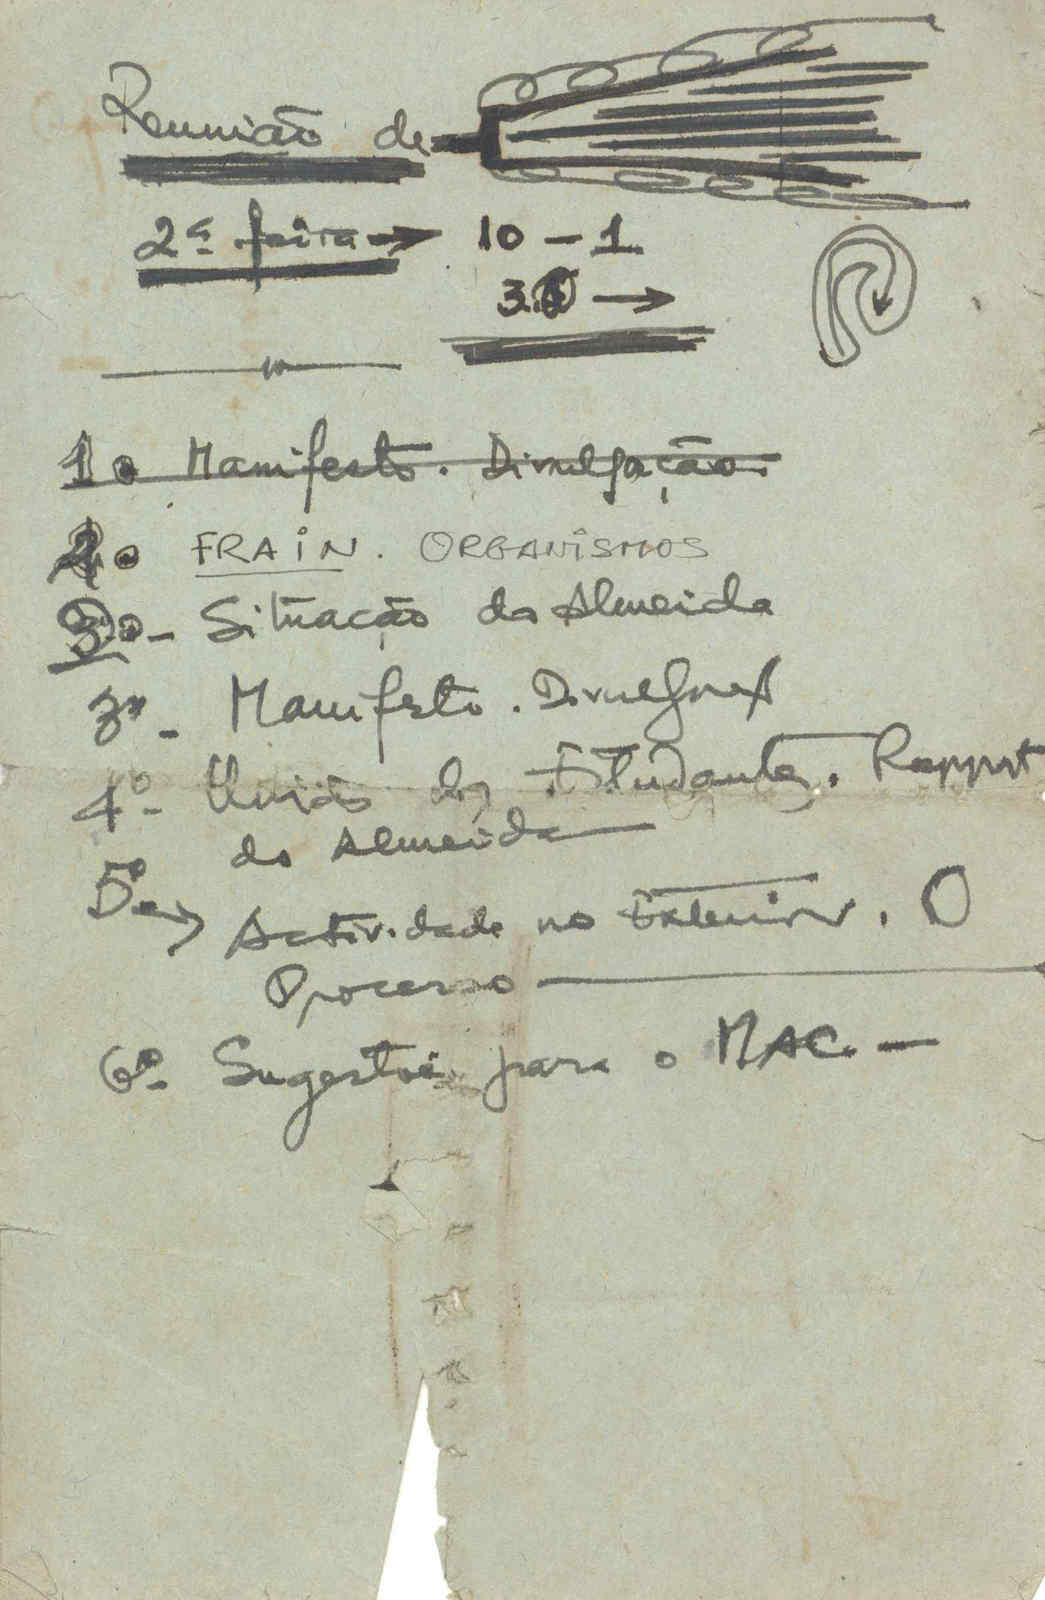 Reunião de
2ª feira → 10 - 1
3. →
1º Manifesto. Divulgação.
2º FRAIN. ORGANISMOS
3º - Situação do Almeida
3º - Manifesto.
4º - União dos Estudantes. Rapport
do Almeida
5º → Actividade no Exterior. O
Processo
6º - Sugestões para o MAC. -